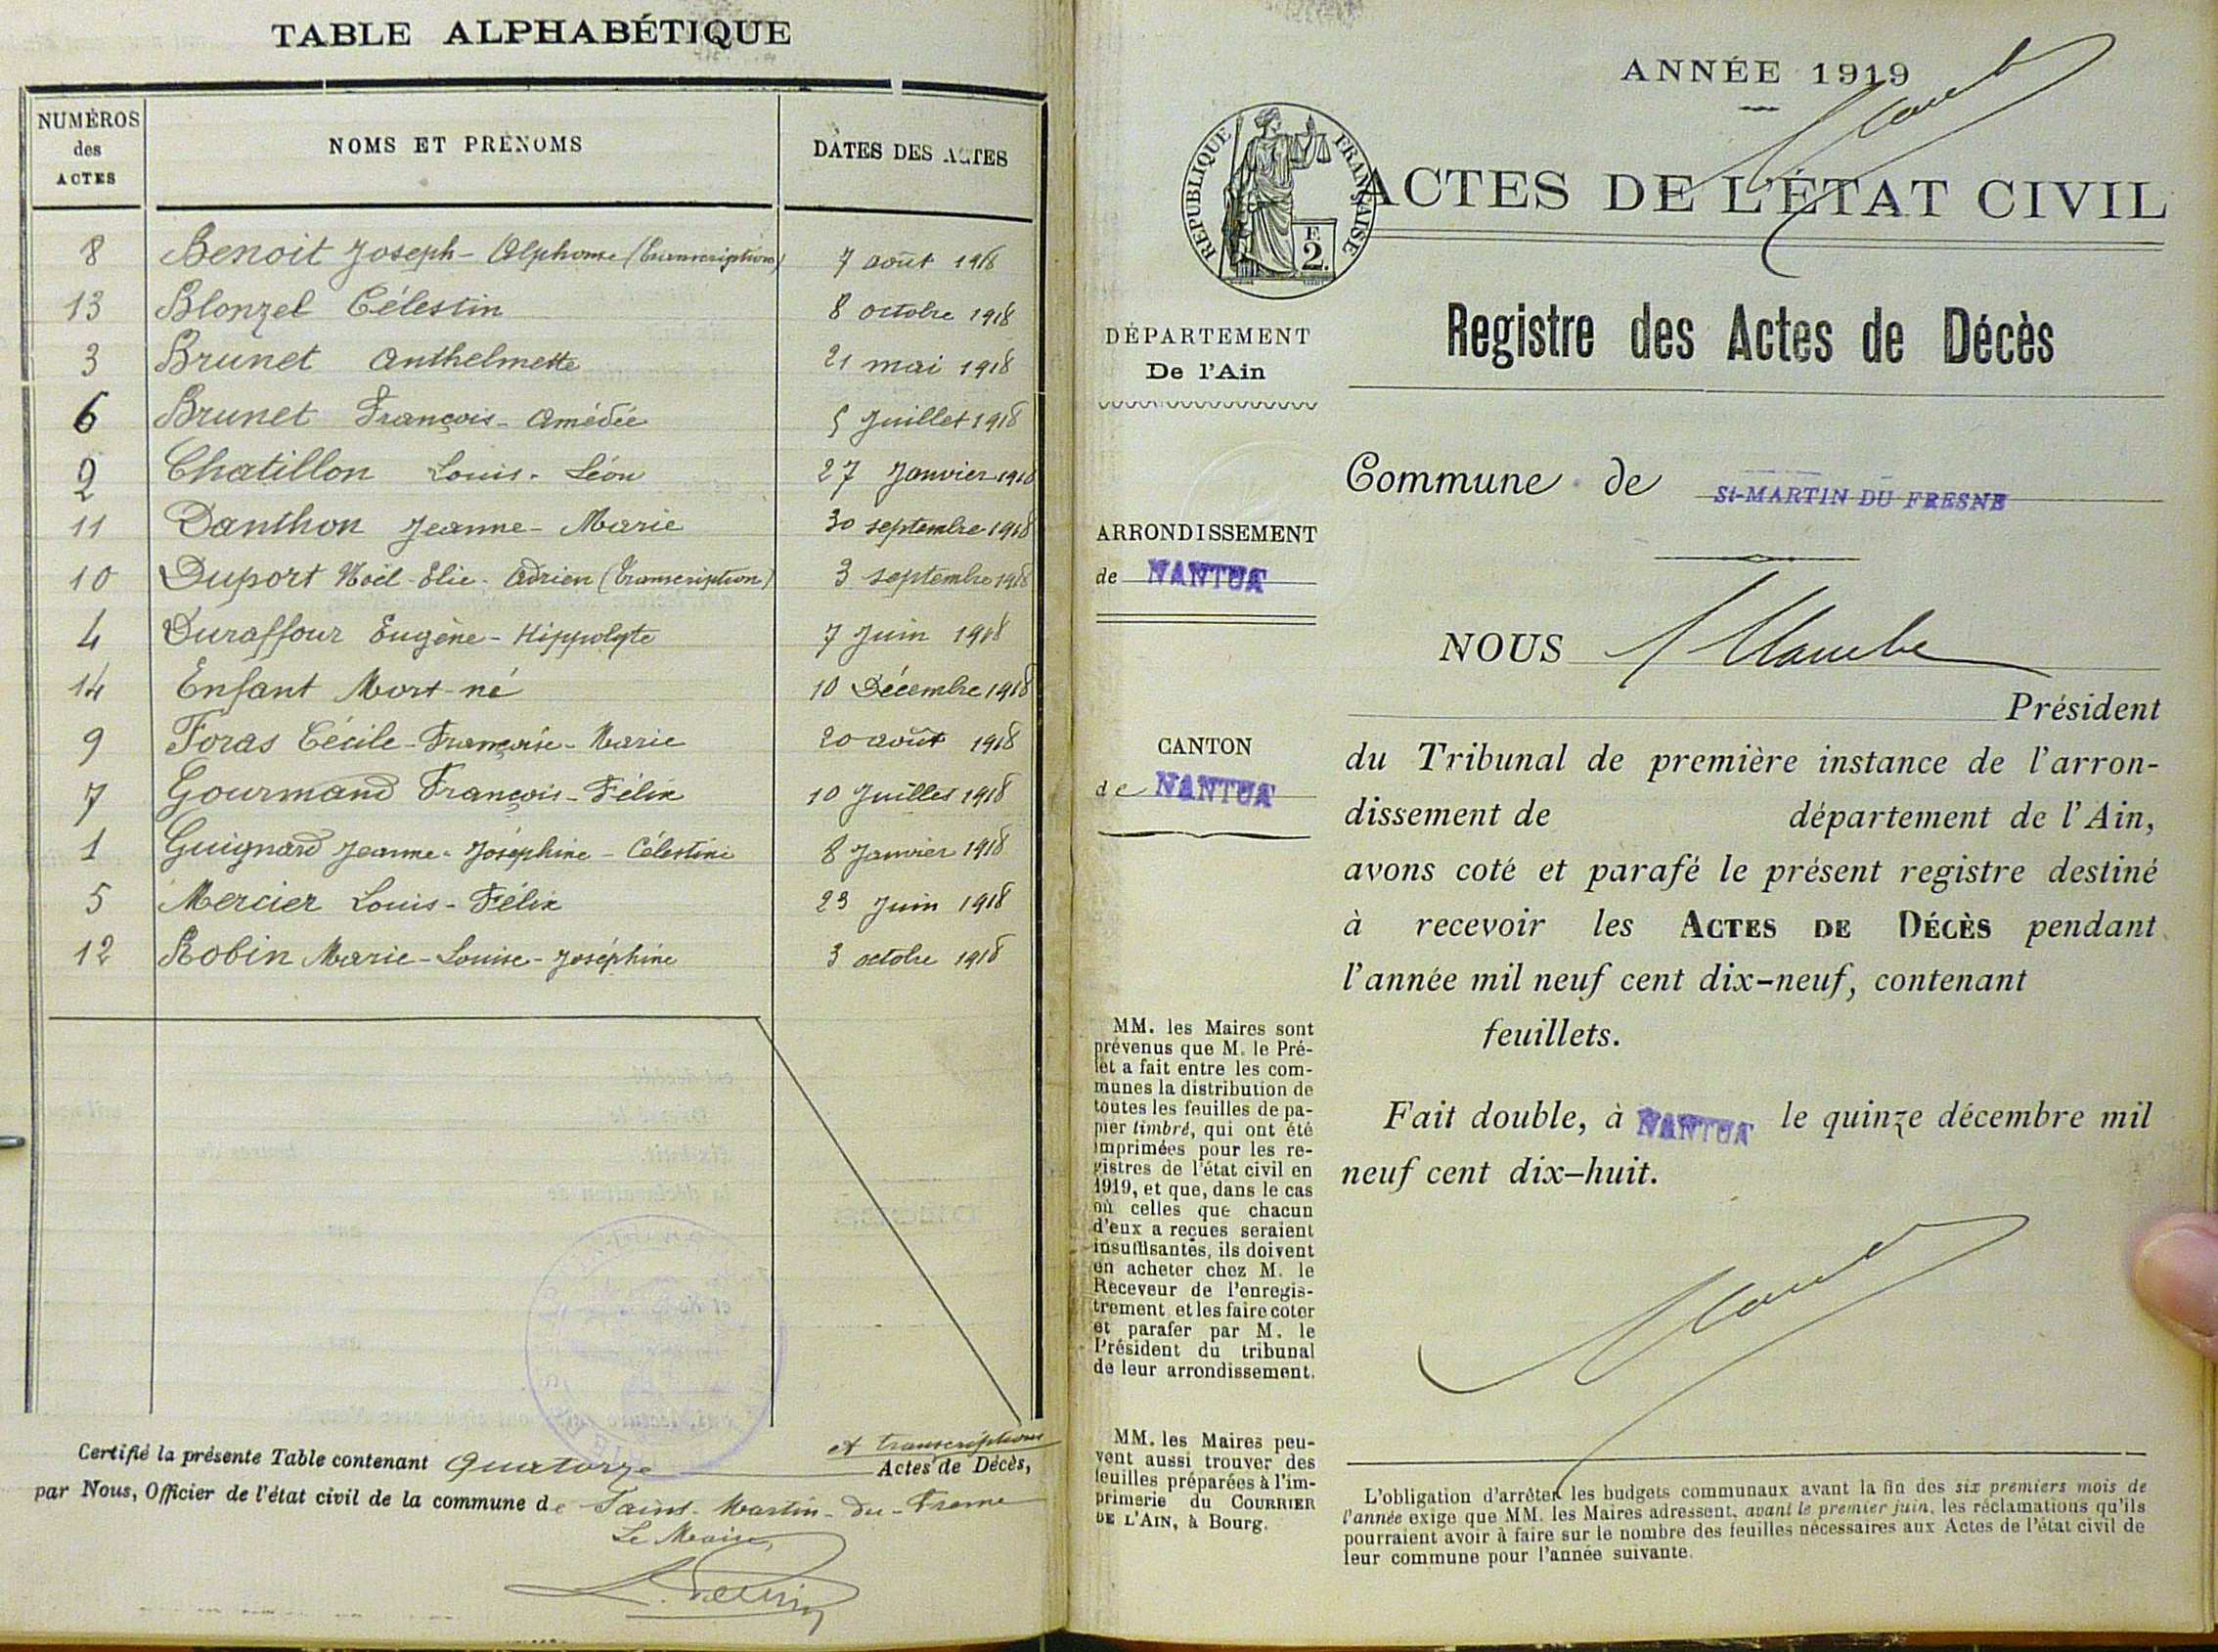 TABLE ALPHABÉTIQUE
NUMÉROS des ACTES NOMS ET PRÉNOMS DATES DES ACTES
8 Benoit Joseph-Alphonse (transcription) 7 août 1918
13 Blonzel Célestin 8 octobre 1918
3 Brunet Anthelmette 21 mai 1918
6 Brunet François-Amédée 5 Juillet 1918
2 Chatillon Louis-Léon 27 Janvier 1918
11 Danthon Jeanne-Marie 30 septembre 1918
10 Duport Noël-Elie-Adrien (transcription) 3 septembre 1918
4 Duraffour Eugène-Hippolyte 7 Juin 1918
14 Enfant Mort-né 10 Décembre 1918
9 Foras Cécile-Françoise-Marie 20 août 1918
7 Gourmand François-Félix 10 Juillet 1918
1 Guignard Jeanne-Joséphine-Célestine 8 Janvier 1918
5 Mercier Louis-Félix 23 Juin 1918
12 Robin Marie-Louise-Joséphine 3 octobre 1918
et transcriptions
Certifié la présente Table contenant Quatorze Actes de Décès,
par Nous, Officier de l'état civil de la commune de Saint-Martin-du-Fresne
Le Maire,
ANNÉE 1919
RÉPUBLIQUE FRANÇAISE
F. 2.
ACTES DE L'ÉTAT CIVIL
DÉPARTEMENT
De l'Ain
ARRONDISSEMENT
de NANTUA
CANTON
de NANTUA
MM. les Maires sont
prévenus que M. le Pré-
fet a fait entre les com-
munes la distribution de
toutes les feuilles de pa-
pier timbré, qui ont été
imprimées pour les re-
gistres de l'état civil en
1919, et que, dans le cas
où celles que chacun
d'eux a reçues seraient
insuffisantes, ils doivent
en acheter chez M. le
Receveur de l'enregis-
trement et les faire coter
et parafer par M. le
Président du tribunal
de leur arrondissement.
MM. les Maires peu-
vent aussi trouver des
feuilles préparées à l'im-
primerie du COURRIER
DE L'AIN, à Bourg.
Registre des Actes de Décès
Commune de St-MARTIN DU FRESNE
NOUS
Président
du Tribunal de première instance de l'arron-
dissement de département de l'Ain,
avons coté et parafé le présent registre destiné
à recevoir les ACTES DE DÉCÈS pendant
l'année mil neuf cent dix-neuf, contenant
feuillets.
Fait double, à NANTUA le quinze décembre mil
neuf cent dix-huit.
L'obligation d'arrêter les budgets communaux avant la fin des six premiers mois de
l'année exige que MM. les Maires adressent, avant le premier juin, les réclamations qu'ils
pourraient avoir à faire sur le nombre des feuilles nécessaires aux Actes de l'état civil de
leur commune pour l'année suivante.